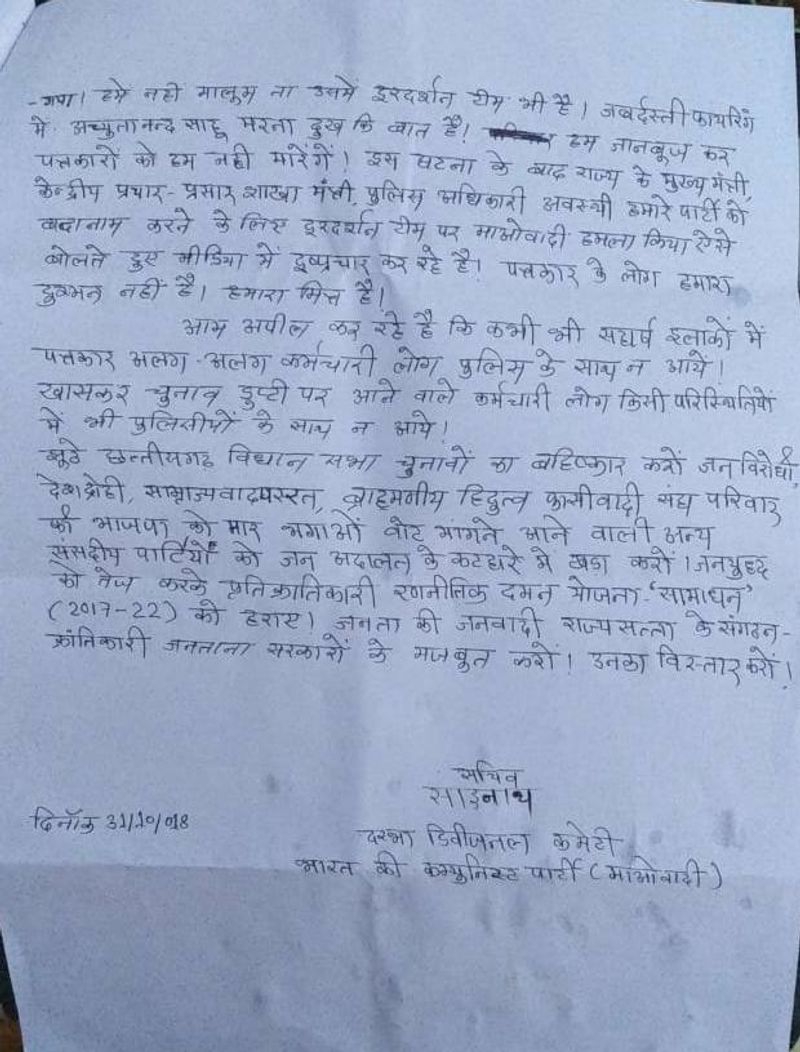 -गया। हमें नहीं मालूम ता उसमें दूरदर्शन टीम भी है। जबर्दस्ती फायरिंग
में अच्युतानन्द साहू मरना दुख कि बात है। हम जानबूज कर
पत्तकारों को हम नही मारेंगें। इस घटना के बाद राज्य के मुख्य मंत्री,
केन्द्रीय प्रचार-प्रसार शाखा मंत्री, पुलिस अधिकारी अवस्थी हमारे पार्टी को
बदानाम करने के लिए दूरदर्शन टीम पर माओवादी हमला किया ऐसे
बोलते हुए मीडिया में दूष्प्रचार कर रहे है। पत्तकार के लोग हमारा
दुश्मन नहीं है। हमारा मित्त है।
आम अपील कर रहे है कि कभी भी संघर्ष इलाकों में
पत्तकार अलग-अलग कर्मचारी लोग पुलिस के साथ न आये।
खासकर चुनाव डुप्टी पर आने वाले कर्मचारी लोग किसी परिस्थितियों
में भी पुलिसीयों के साथ न आये।
झूठे छत्तीसगढ़ विधान सभा चुनावों का बहिष्कार करों जन विरोधी,
देशद्रोही, साम्राज्यवादपस्त, ब्राहमणीय हिंदुत्व फासीवादी संघ परिवार
की भाजपा को मार भगाओं वोट मांगते आने वाली अन्य
संसदीय पार्टियों को जन अदालत के कटघरे में खडा करों। जनयुद्द
को तेज करके प्रतिक्रांतिकारी रणनीतिक दमन योजना-'सामाधन'
(2017-22) को हराए। जनता की जनवादी राज्यसत्ता के संगठन-
क्रांतिकारी जनताना सरकारों के मजबुत करों। उनका विस्तार करों।
सचिव
साइनाथ
दिनाँक 31/10/018
दरभा डिवीजनल कमेटी
भारत की कम्युनिस्ट पार्टी (माओवादी)